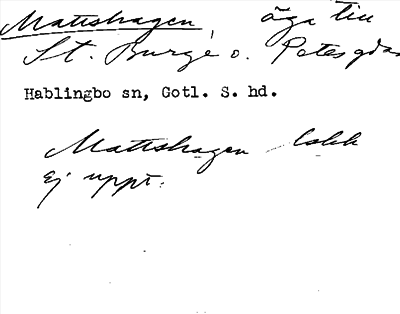 Mattshagen, äga till
St. Burge o. Petesgdar
Hablingbo sn, Gotl. S. hd.
Mattshagen lokk
Ej uppt.